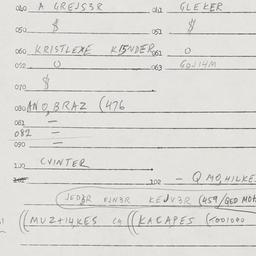 040 A GREJS3R 041 GLEKER
050 $ 051 $
060 KRISTLEXE KI5NDER 061 O
052 U 063 GOJ14M
070 $
080 AND, BRAZ (476
081 —
082 —
090 —
100 CVINTER
102 — Q MO, HILKES
JED3R EJN3R KEJV3R (459/GED MOH
((MUZ+14,KES CA ((KACAPES (TOO1040